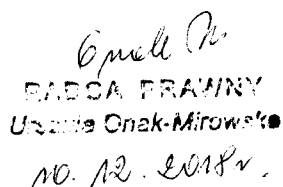 RADCA PRAWNY
Urszula Onak-Mirowska
10. 12. 2018r.